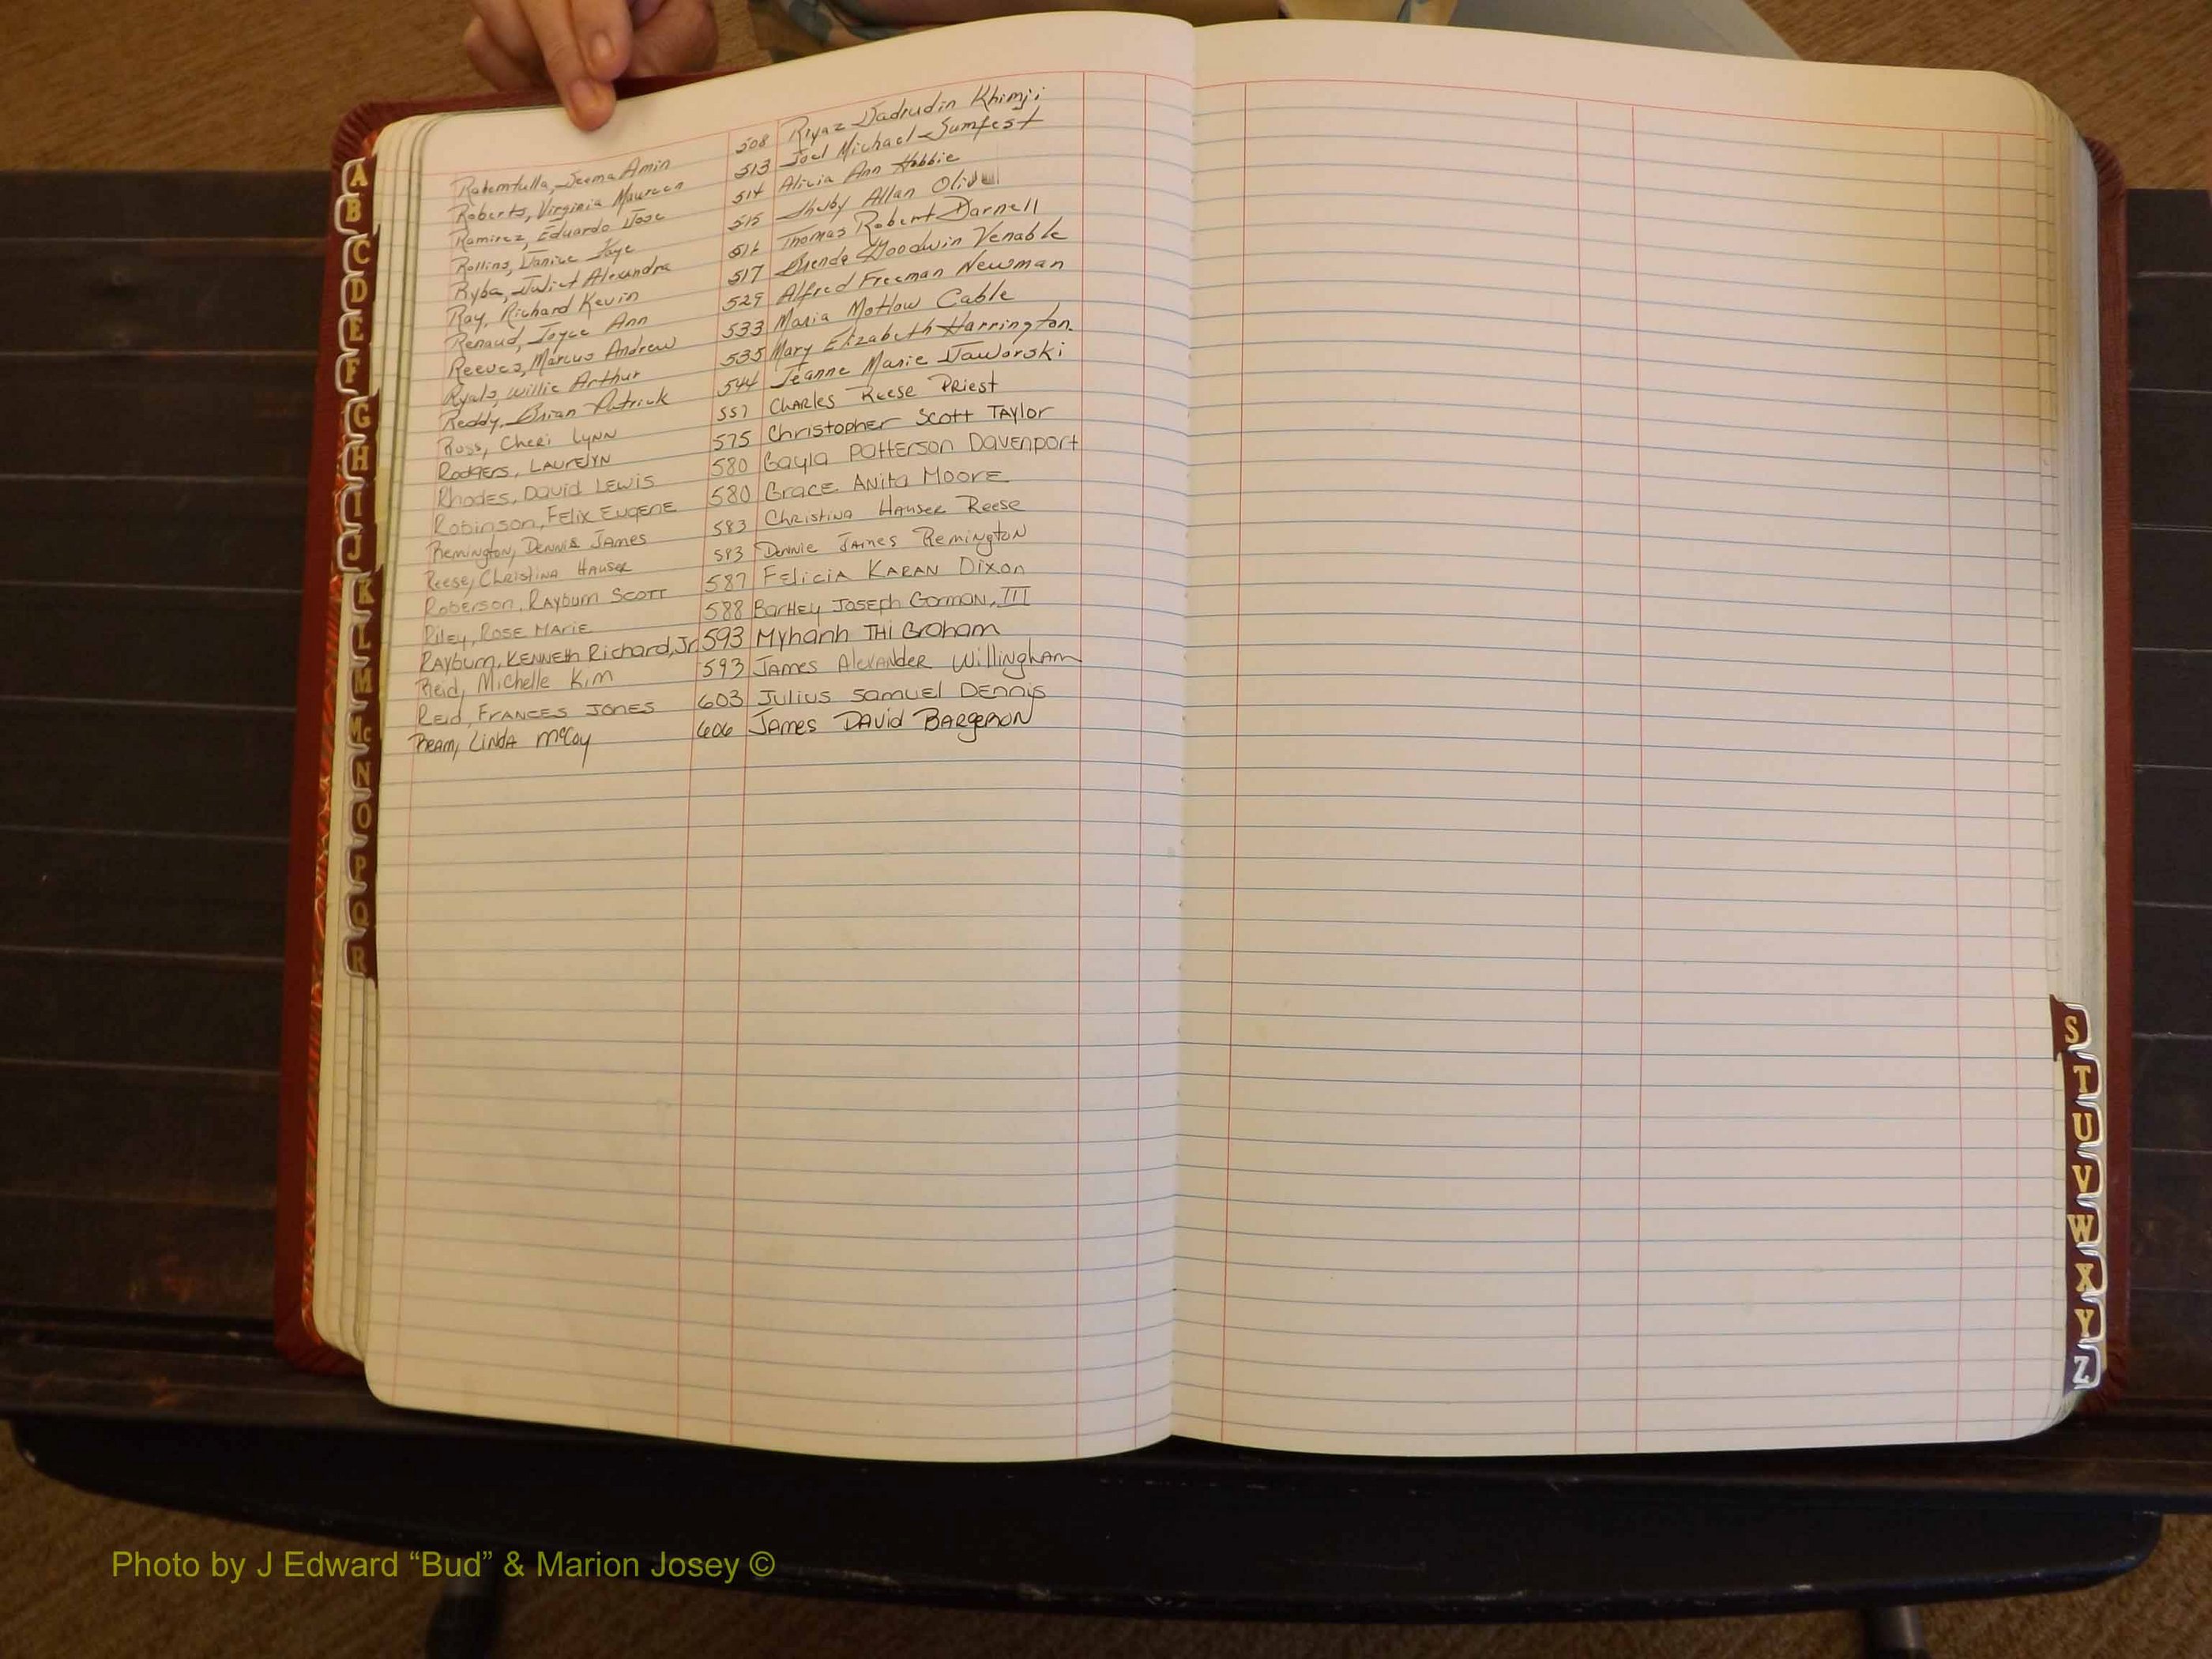 Rahemtulla, Seema Amin 508 Riyaz Sadrudin Khimji
Roberts, Virginia Maureen 513 Joel Michael Sumfest
Ramirez, Eduardo Jose 514 Alicia Ann Hobbie
Rollins, Janice Faye 515 Shelby Allan
Ryba, Juliet Alexandra 516 Thomas Robert Darnell
Ray, Richard Kevin 517 Brenda Goodwin Venable
Renaud, Joyce Ann 529 Alfred Freeman Newman
Reeves, Marcus Andrew 533 Maria Motlow Cable
Ryals, Willie Arthur 535 Mary Elizabeth Harrington.
Reddy, Brian Patrick 544 Jeanne Marie Jaworski
Ross, Cheri Lynn 557 Charles Reese Priest
Rodgers, Laurelyn 575 Christopher Scott Taylor
Rhodes, David Lewis 580 Gayla Patterson Davenport
Robinson, Felix Eugene 580 Grace Anita Moore
Remington, Dennie James 583 Christina Hauser Reese
Reese, Christina Hauser 583 Dennie James Remington
Roberson, Rayburn Scott 587 Felicia Karan Dixon
Riley, Rose Marie 588 Bartley Joseph Gorman, III
Rayburn, Kenneth Richard, Jr 593 Myhanh Thi Graham
Reid, Michelle Kim 593 James Alexander Willingham
Reid, Frances Jones 603 Julius Samuel Dennis
Ream, Linda McCoy 606 James David Bargeron
A
B
C
D
E
F
G
H
I
J
K
L
M
Mc
N
O
P
Q
R
S
T
U
V
W
X
Y
Z
Photo by J Edward “Bud” & Marion Josey ©